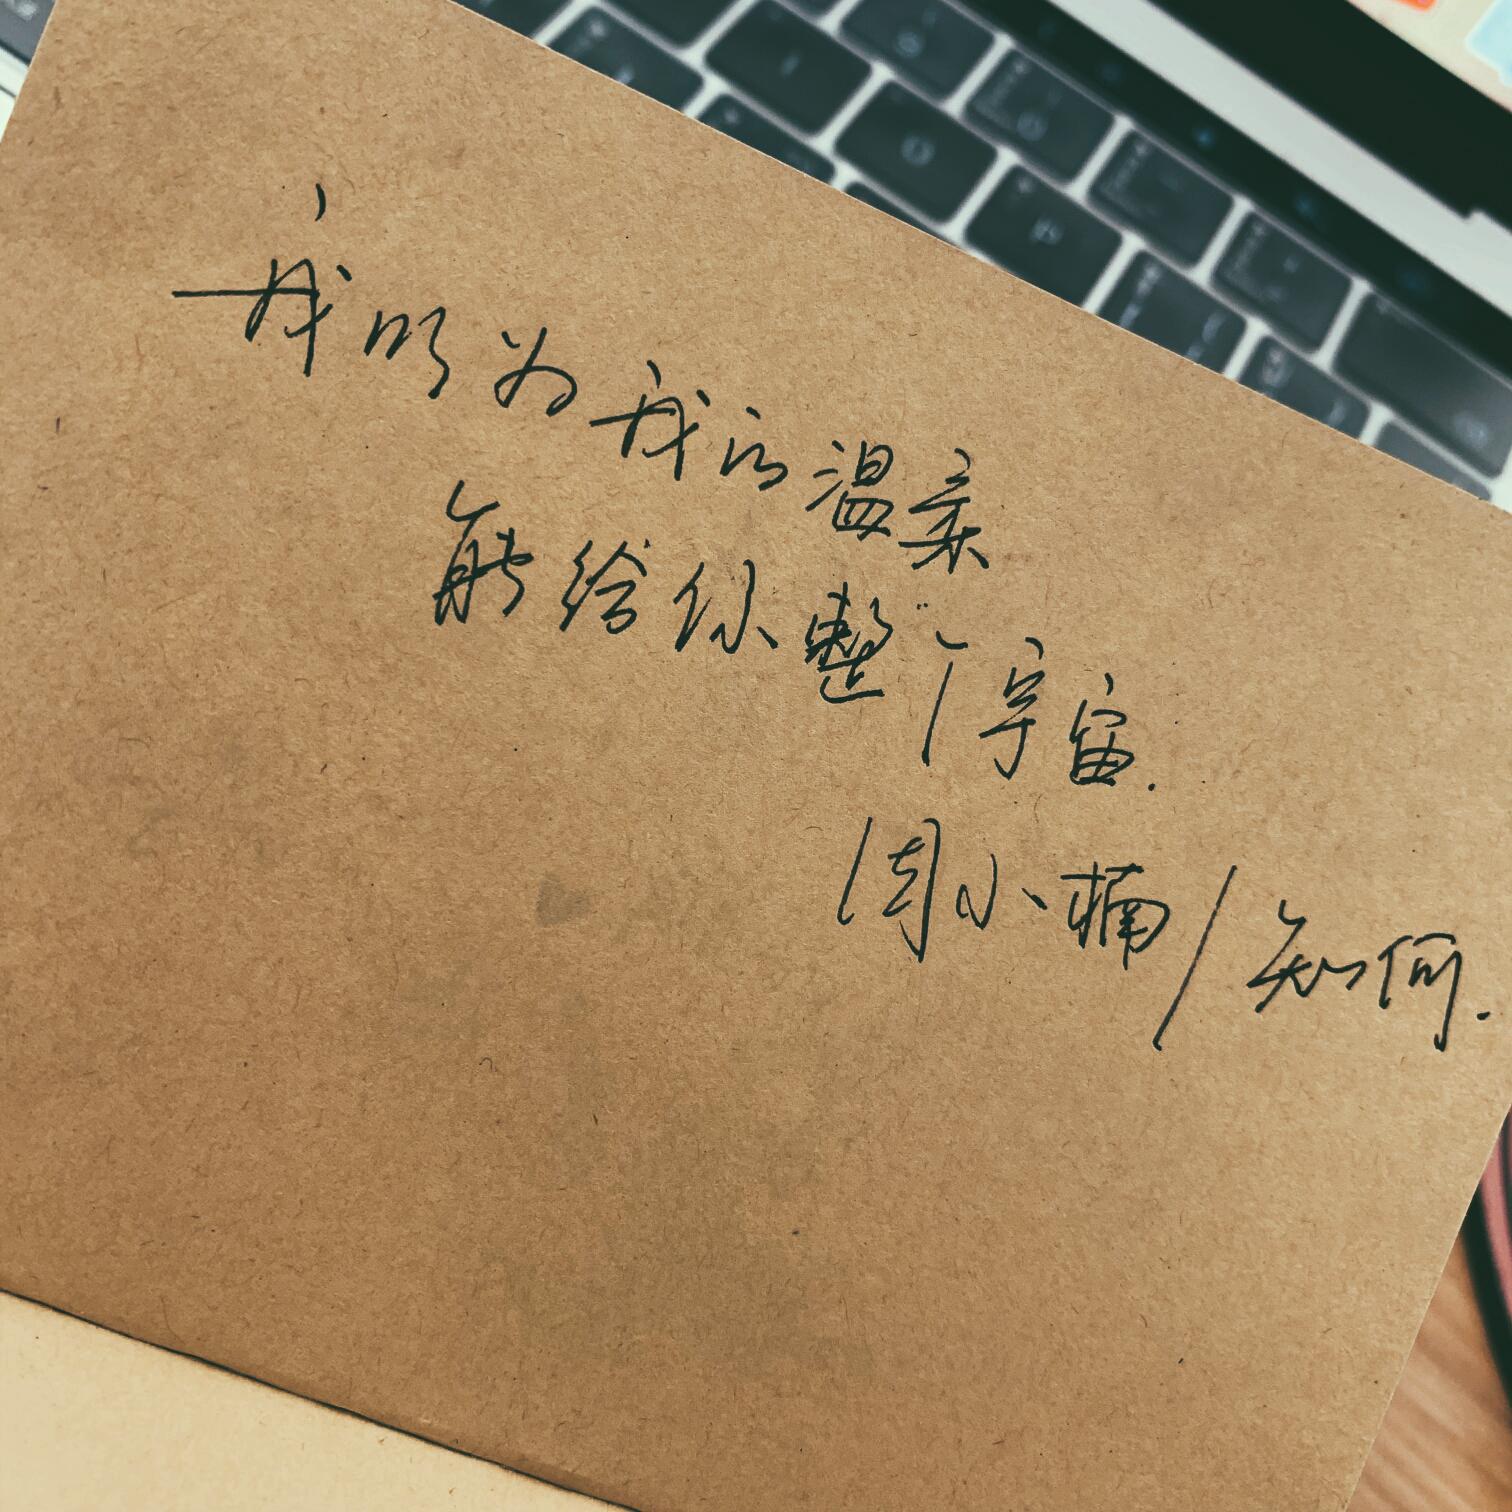 我以为我的温柔
能给你整个宇宙.
周小楠/知何.